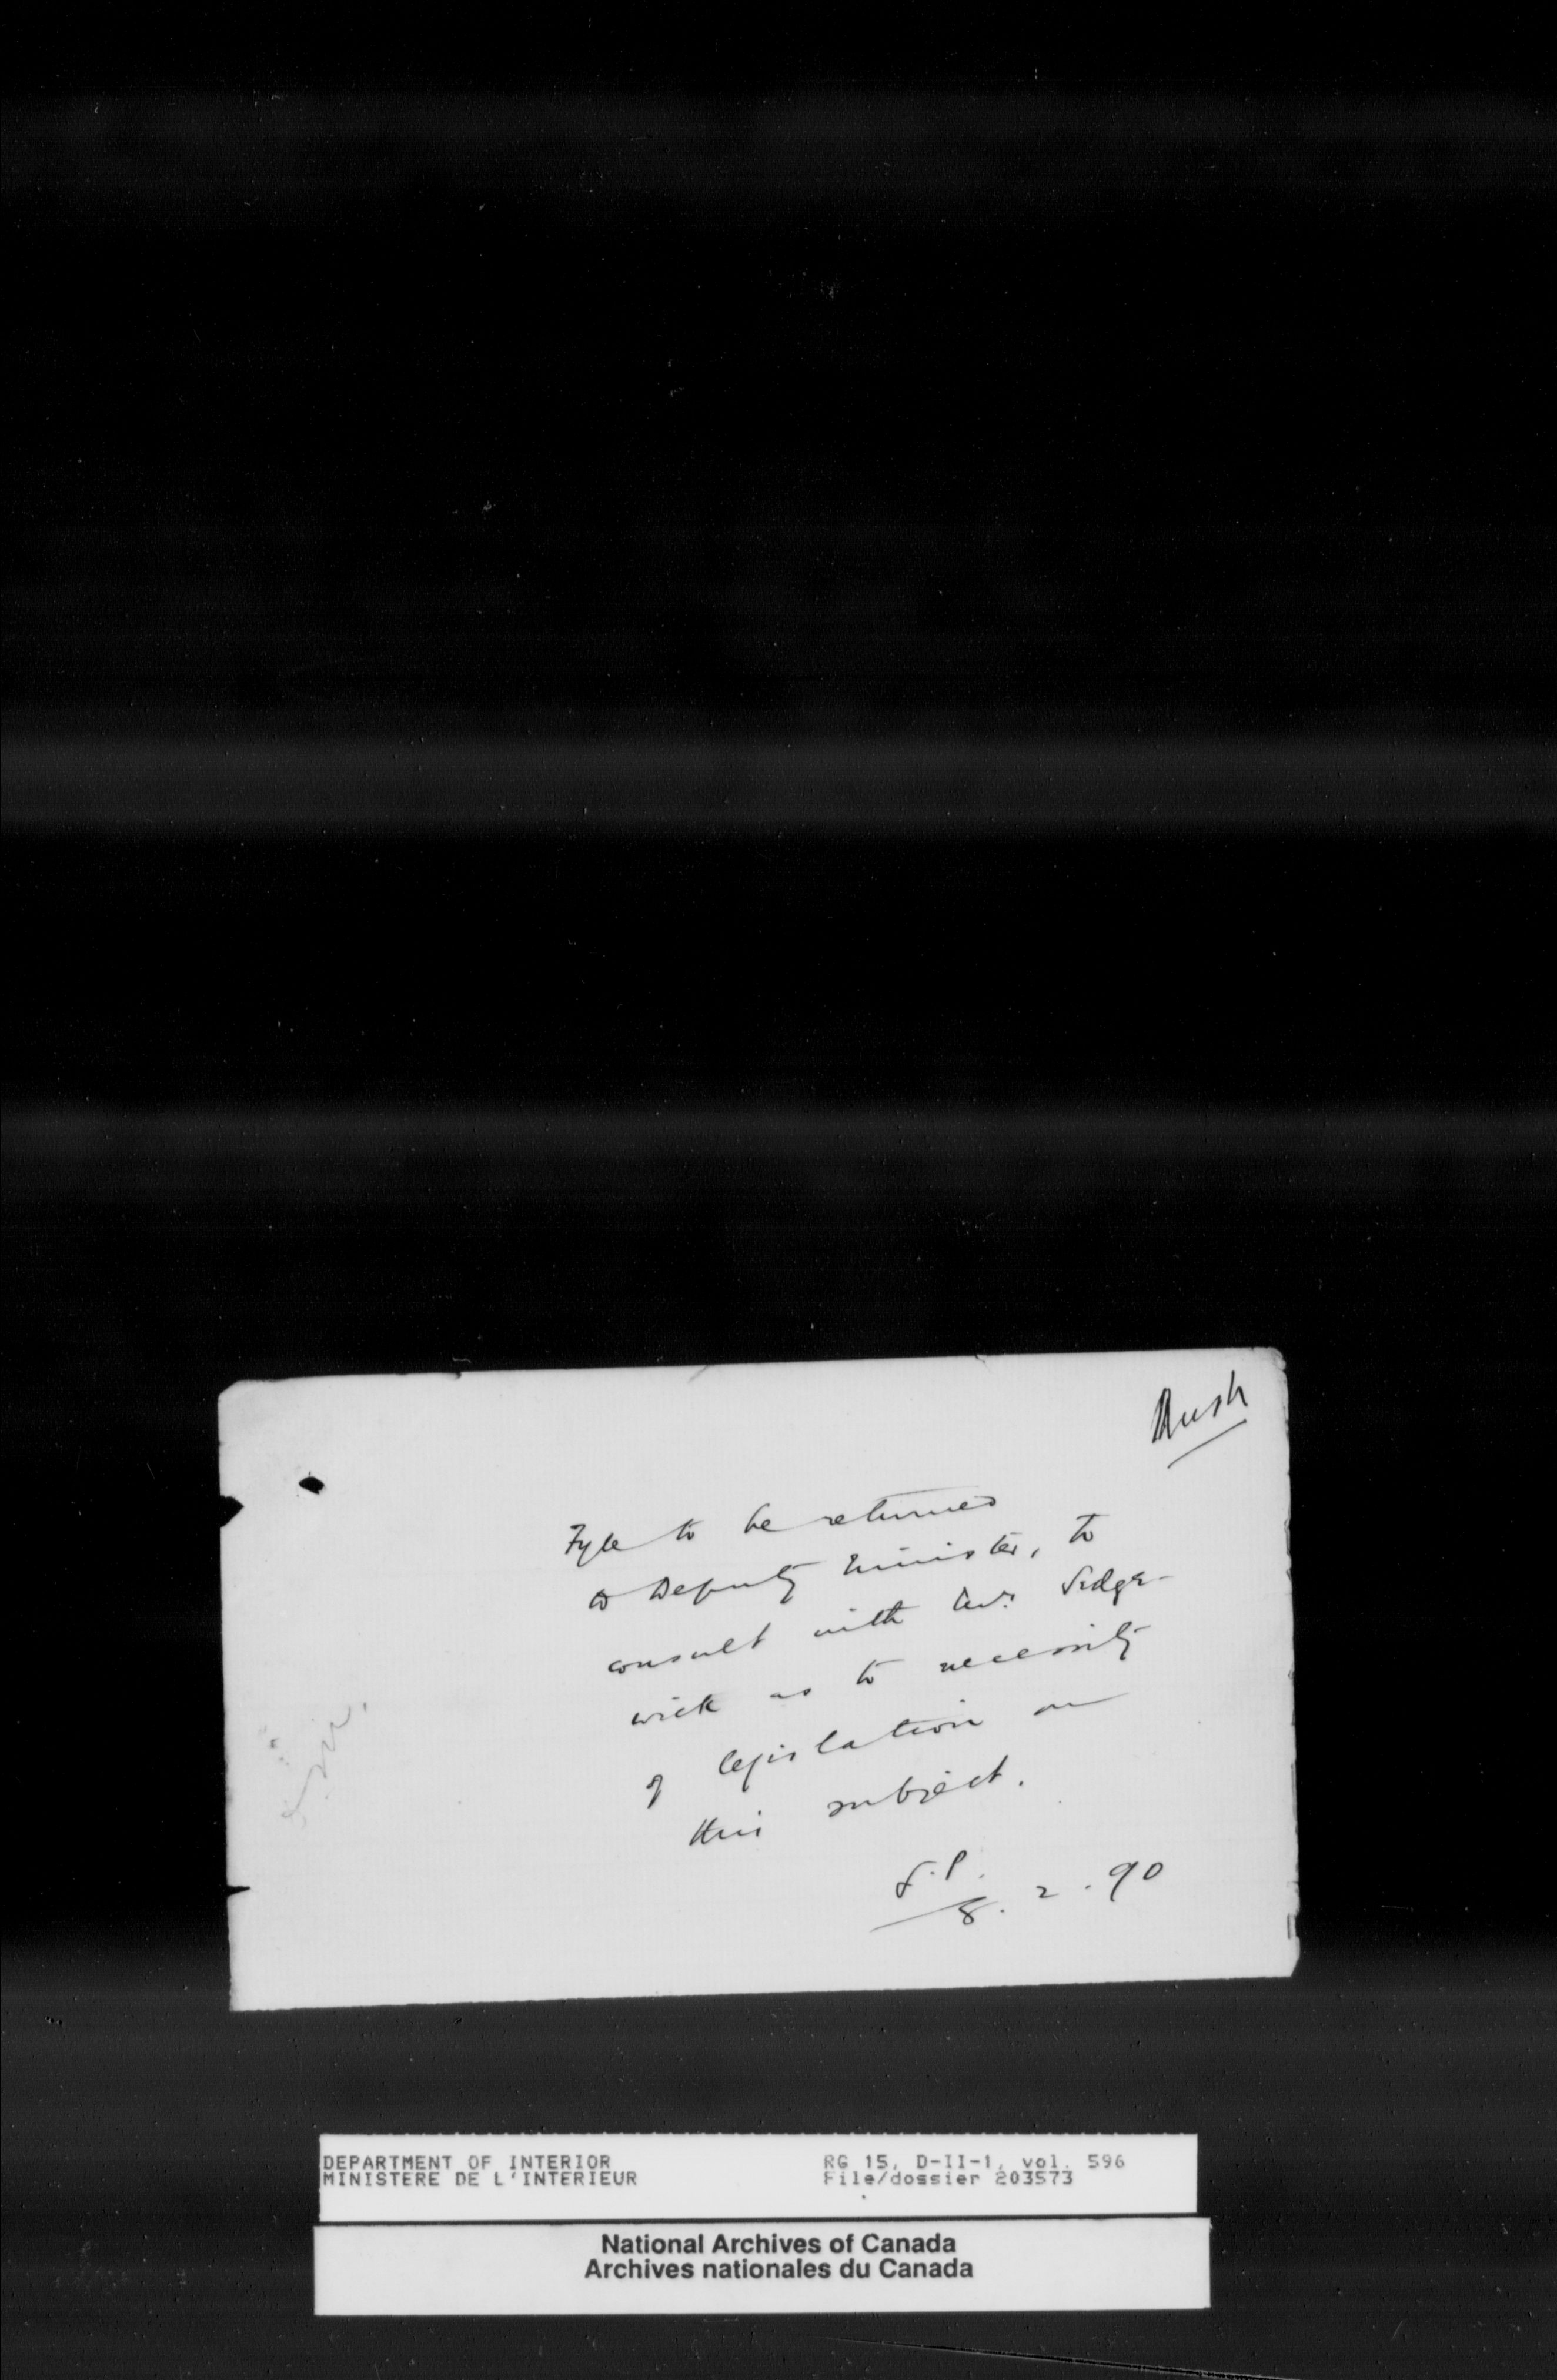 Rush
Fyle to be returned
to Deputy Minister, to
consult with Mr. Sedge-
wick as to necessity
of legislation on
this subject.
8. 2. 90
DEPARTMENT OF INTERIOR
MINISTERE DE L'INTERIEUR
RG 15, D-II-1, vol. 596
File/dossier 203573
National Archives of Canada
Archives nationales du Canada